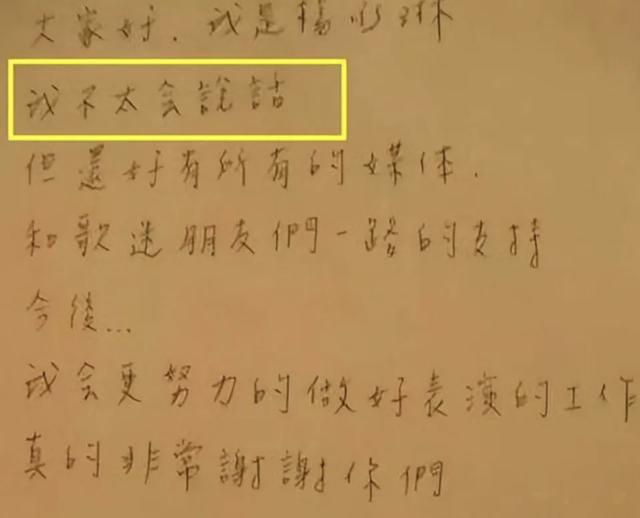 大家好．我是楊丞琳
我不太会說話
但還好有所有的媒体．
和歌迷朋友們一路的支持
今後...
我会更努力的做好表演的工作
真的非常謝謝你們